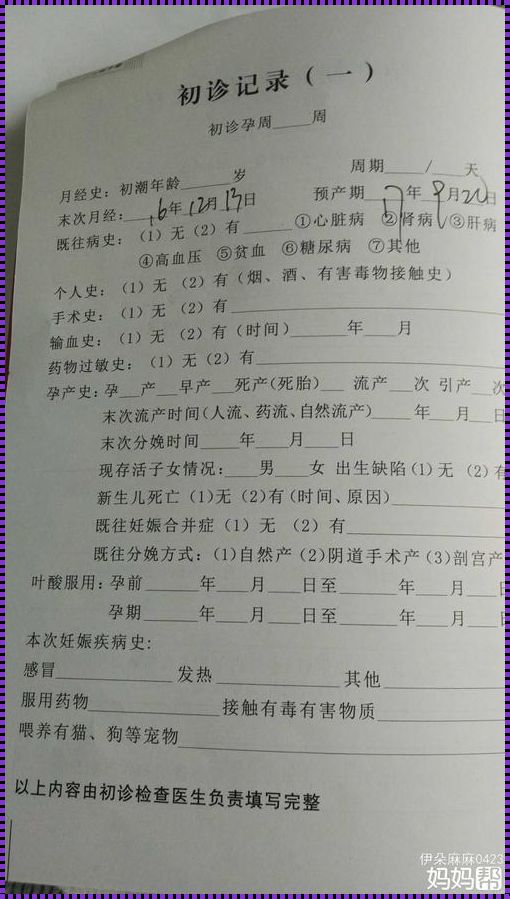 初诊记录（一）
初诊孕周____周
月经史：初潮年龄______岁 周期____/___天
末次月经：16年12月13日 预产期17年9月20日
既往病史：（1）无（2）有_____①心脏病 ②肾病 ③肝病
④高血压 ⑤贫血 ⑥糖尿病 ⑦其他
个人史：（1）无（2）有（烟、酒、有害毒物接触史）
手术史：（1）无（2）有____
输血史：（1）无（2）有（时间）______年___月
药物过敏史：（1）无（2）有____
孕产史：孕__产__早产__死产(死胎)__ 流产__次 引产__次
末次流产时间(人流、药流、自然流产)____年__月__日
末次分娩时间____年___月___日
现存活子女情况：___男___女 出生缺陷(1)无 (2)有
新生儿死亡 (1)无 (2)有(时间、原因)____
既往妊娠合并症 (1) 无 (2) 有____
既往分娩方式：(1)自然产 (2)阴道手术产 (3)剖宫产
叶酸服用：孕前_____年___月___日至_____年___月___日
孕期_____年___月___日至_____年___月___日
本次妊娠疾病史:
感冒____发热____其他____
服用药物____接触有毒有害物质____
喂养有猫、狗等宠物____
以上内容由初诊检查医生负责填写完整
伊朵麻麻0423
妈妈帮